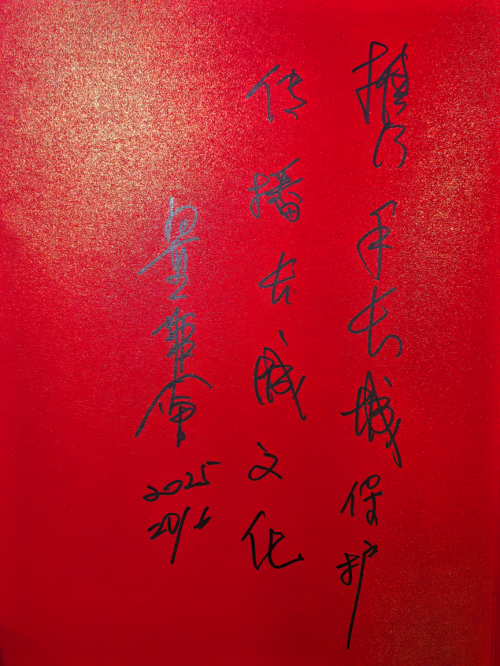 携手长城保护
传播长城文化
董耀会
2025
20/6